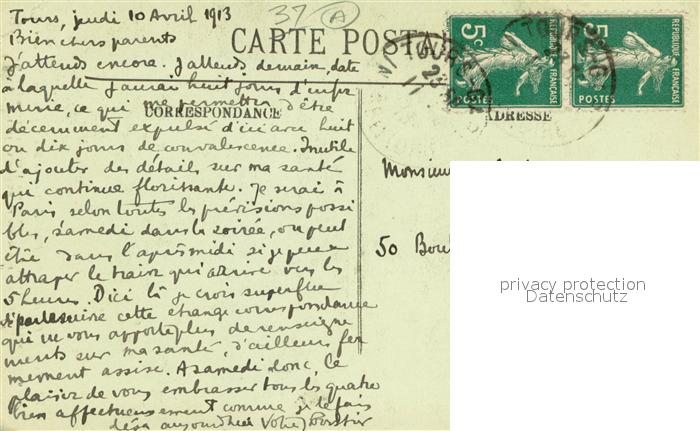 Tours, jeudi 10 Avril 1913
37 A
Bien chers parents
CARTE POSTA
J'attends encore. J'attends demain, date
à laquelle j'aurai huit jours d'infir
merie, ce qui me permettra d'être
CORRESPONDANCE
ADRESSE
décemment expulsé d'ici avec huit
ou dix jours de convalescence. Inutile
d'ajouter des détails sur ma santé
qui continue florissante. Je serai à
Paris selon toutes les prévisions possi
bles, samedi dans la soirée, ou peut
être dans l'après midi si je peux
attraper le train qui arrive vers les
5 heures. D'ici là je crois superflue
cette étrange correspondance
qui ne vous apporte plus de renseigne
ments sur ma santé, d'ailleurs fer
mement assise. A samedi donc, le
plaisir de vous embrasser tous les quatre
bien affectueusement comme je le fais
déjà aujourd'hui Votre
Monsieur
50 Boul
5c
POSTES
REPUBLIQUE FRANÇAISE
5c
POSTES
REPUBLIQUE FRANÇAISE
TOURS
privacy protection
Datenschutz